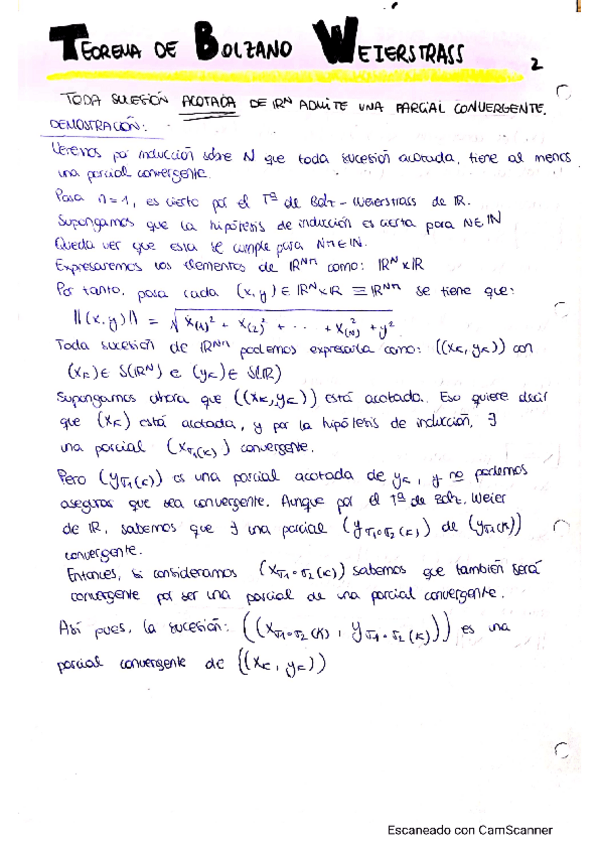 TEOREMA DE BOLZANO WEIERSTRASS
2
TODA SUCESIÓN ACOTADA DE IRᴺ ADMITE UNA PARCIAL CONVERGENTE.
DEMOSTRACIÓN:
Veremos por inducción sobre N que toda sucesión acotada, tiene al menos
una parcial convergente.
Para n=1, es cierto por el Tª de Bolz-Weierstrass de IR.
Supongamos que la hipótesis de inducción es cierta para N∈IN
Queda ver que esta se cumple para N+1∈IN.
Expresaremos los elementos de IRᴺ⁺¹ como: IRᴺ x IR
Por tanto, para cada (x,y) ∈ IRᴺ x IR ≡ IRᴺ⁺¹ se tiene que:
||(x,y)|| = √(x(1)² + x(2)² + ... + x(N)² + y²)
Toda sucesión de IRᴺ⁺¹ podemos expresarla como: ((xₖ, yₖ)) con
(xₖ) ∈ S(IRᴺ) e (yₖ) ∈ S(IR)
Supongamos ahora que ((xₖ, yₖ)) está acotada. Eso quiere decir
que (xₖ) está acotada, y por la hipótesis de inducción, ∃
una parcial (x_σ₁(k)) convergente.
Pero (y_σ₁(k)) es una parcial acotada de yₖ, y no podemos
asegurar que sea convergente. Aunque por el Tª de Bolz. Weier
de IR, sabemos que ∃ una parcial (y_σ₁∘σ₂(k)) de (y_σ₁(k))
convergente.
Entonces, si consideramos (x_σ₁∘σ₂(k)) sabemos que también será
convergente por ser una parcial de una parcial convergente.
Así pues, la sucesión: ((x_σ₁∘σ₂(k), y_σ₁∘σ₂(k))) es una
parcial convergente de ((xₖ, yₖ))
Escaneado con CamScanner